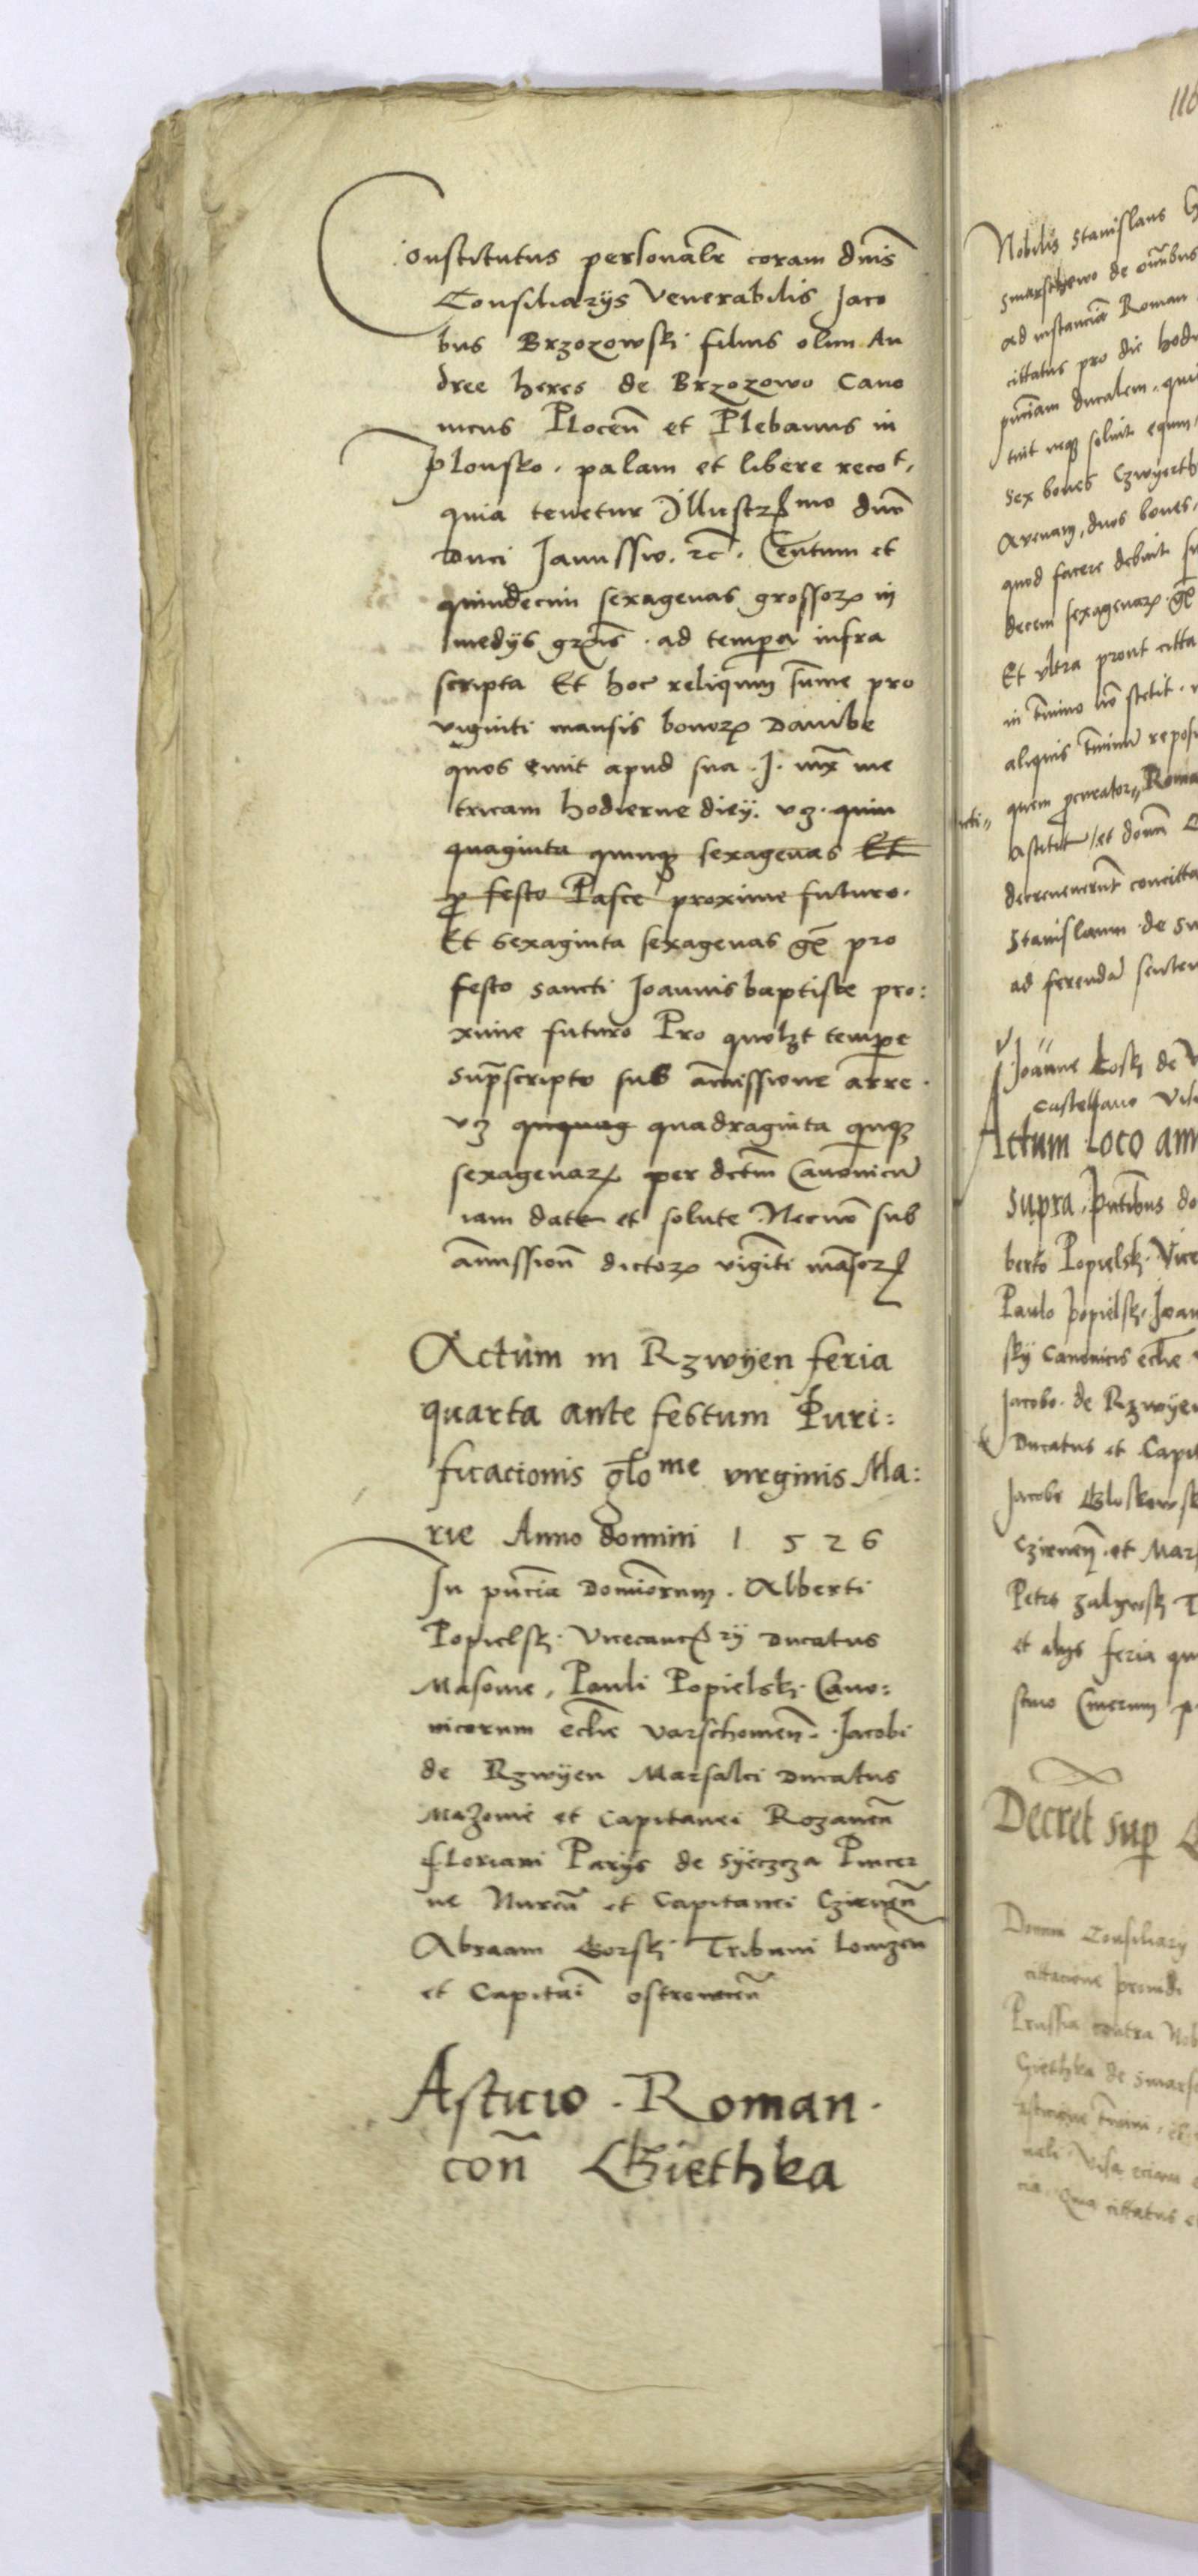 Constitutus personalr coram dnis
Consiliarijs Venerabilis Jaco
bus Brzozowsky filius olim An
dree heres de Brzozowo Cano
nicus Plocen et Plebanus in
Plonsko. palam et libere recot,
quia tenetur Illustrmo dno
duci Janussio. etc. Centum et
quindecim sexagenas grossorum in
medijs gris. ad tempora infra
scripta Et hoc reliquum summe pro
viginti mansis bonorum
quos emit apud sua. J. me
tricam hodierne diey. vz. quin
quaginta quinque sexagenas Et
pro festo Pasce proxime futuro.
Et sexaginta sexagenas ge pro
festo sancti Joannis baptiste pro:
xime futuro Pro quolzt tempore
suprascripto sub amissione arre.
vz quadraginta quinque
sexagenarum per dctm Canonicum
iam date et solute Necno sub
amission dictorum viginti mansor
Actum in Rzwyen feria
quarta ante festum Puri:
ficacionis glome virginis Ma:
rie Anno domini 1526
In pncia dominorum. Alberti
Popielsky Vicecancrij ducatus
Masouie, Pauli Popielsky Cano:
nicorum ecclie varschouien. Jacobi
de Rzwyen Marsalci ducatus
Mazouie et Capitanei Rozanen
floriani Parys de Pincer
ne Nuren et Capitanei Czirnen
Abraam Gorsky Tribuni lomzen
et Capitai ostrowien
Asticio. Roman.
con Ghiethka
Nobilis Stanislaus
de omnibus
ad instancia Roman
cittatus pro die hod
pnciam ducalem. qui
tuit neque soluit equm,
Sex boues
duos boues,
quod facere debuit
decem sexagenarum. ge
Et vltra prout citta
in tmino no stetit.
aliquis tminum repos
quem procurator Roma
astitit et domi
decreuerunt
Stanislaum de
ad ferenda senten
Joanne de
castellano Vis
Actum loco ann
supra, pntibus do
berto Popielsky. Vice
Paulo popielsky. Joan
sky Canonicis ecclie
Jacobo. de Rzwyen
Ducatus et Capit
Jacobo
Czirnen. et Mar
Petro
et alijs feria qu
Cinerum p
Decret sup
Domini Consiliary
cittacione
Prussia contra Nob
Giethka de